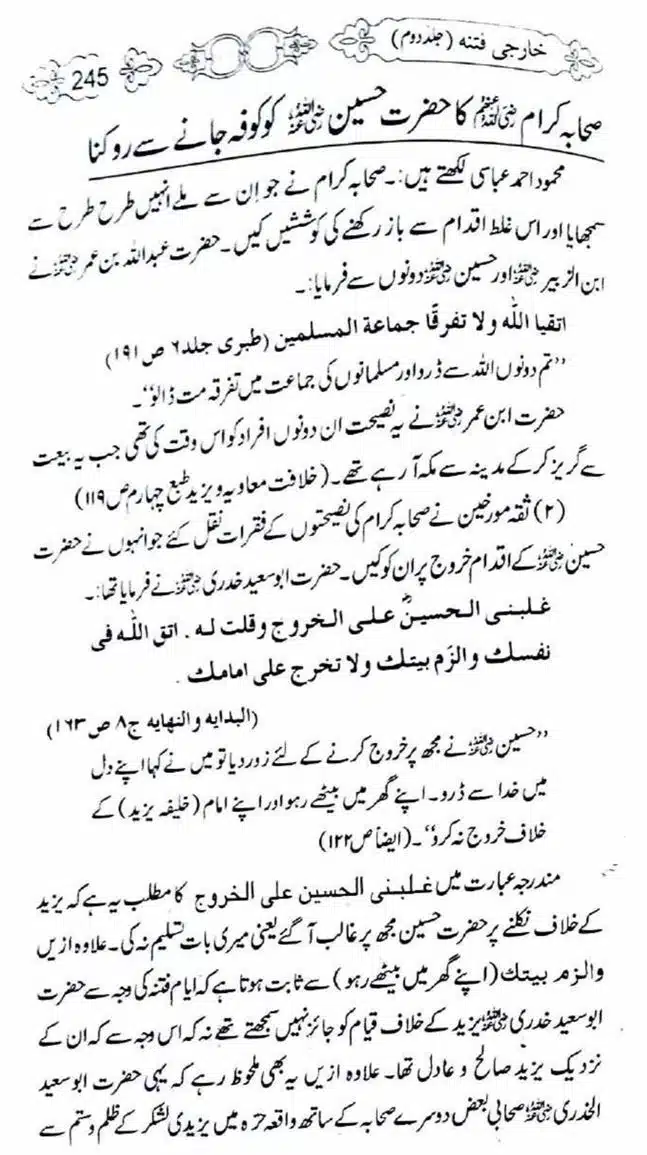 خارجی فتنہ (جلد دوم)
245
صحابہ کرام ؓ کا حضرت حسین ؓ کو کوفہ جانے سے روکنا
محمود احمد عباسی لکھتے ہیں:۔ صحابہ کرام نے جو اِن سے ملے انہیں طرح طرح سے
سمجھایا اور اس غلط اقدام سے باز رکھنے کی کوششیں کیں۔ حضرت عبداللہ بن عمر ؓ نے
ابن الزبیر ؓ اور حسین ؓ دونوں سے فرمایا:۔
اتقيا الله ولا تفرقًا جماعة المسلمين (طبری جلد ۶ ص ۱۹۱)
’’تم دونوں اللہ سے ڈرو اور مسلمانوں کی جماعت میں تفرقہ مت ڈالو‘‘۔
حضرت ابن عمر ؓ نے یہ نصیحت ان دونوں افراد کو اس وقت کی تھی جب یہ بیعت
سے گریز کر کے مدینہ سے مکہ آ رہے تھے۔ (خلافت معاویہ و یزید طبع چہارم ص ۱۱۹)
(۲) ثقہ مورخین نے صحابہ کرام کی نصیحتوں کے فقرات نقل کئے جو انہوں نے حضرت
حسین ؓ کے اقدام خروج پر ان کو کیں۔ حضرت ابو سعید خدری ؓ نے فرمایا تھا:۔
غلبنى الحسينؓ على الخروج وقلت له . اتق الله فى
نفسك والزَم بيتك ولا تخرج على امامك .
(البدایہ والنہایہ ج ۸ ص ۱۶۳)
’’حسین ؓ نے مجھ پر خروج کرنے کے لئے زور دیا تو میں نے کہا اپنے دل
میں خدا سے ڈرو۔ اپنے گھر میں بیٹھے رہو اور اپنے امام (خلیفہ یزید) کے
خلاف خروج نہ کرو‘‘۔ (ایضاً ص ۱۲۲)
مندرجہ عبارت میں غلبنى الحسين على الخروج کا مطلب یہ ہے کہ یزید
کے خلاف نکلنے پر حضرت حسین مجھ پر غالب آ گئے یعنی میری بات تسلیم نہ کی۔ علاوہ ازیں
والزم بيتك (اپنے گھر میں بیٹھے رہو) سے ثابت ہوتا ہے کہ ایام فتنہ کی وجہ سے حضرت
ابو سعید خدری ؓ یزید کے خلاف قیام کو جائز نہیں سمجھتے تھے نہ کہ اس وجہ سے کہ ان کے
نزدیک یزید صالح و عادل تھا۔ علاوہ ازیں یہ بھی ملحوظ رہے کہ یہی حضرت ابو سعید
الخدری ؓ صحابی بعض دوسرے صحابہ کے ساتھ واقعہ حرّہ میں یزیدی لشکر کے ظلم و ستم سے